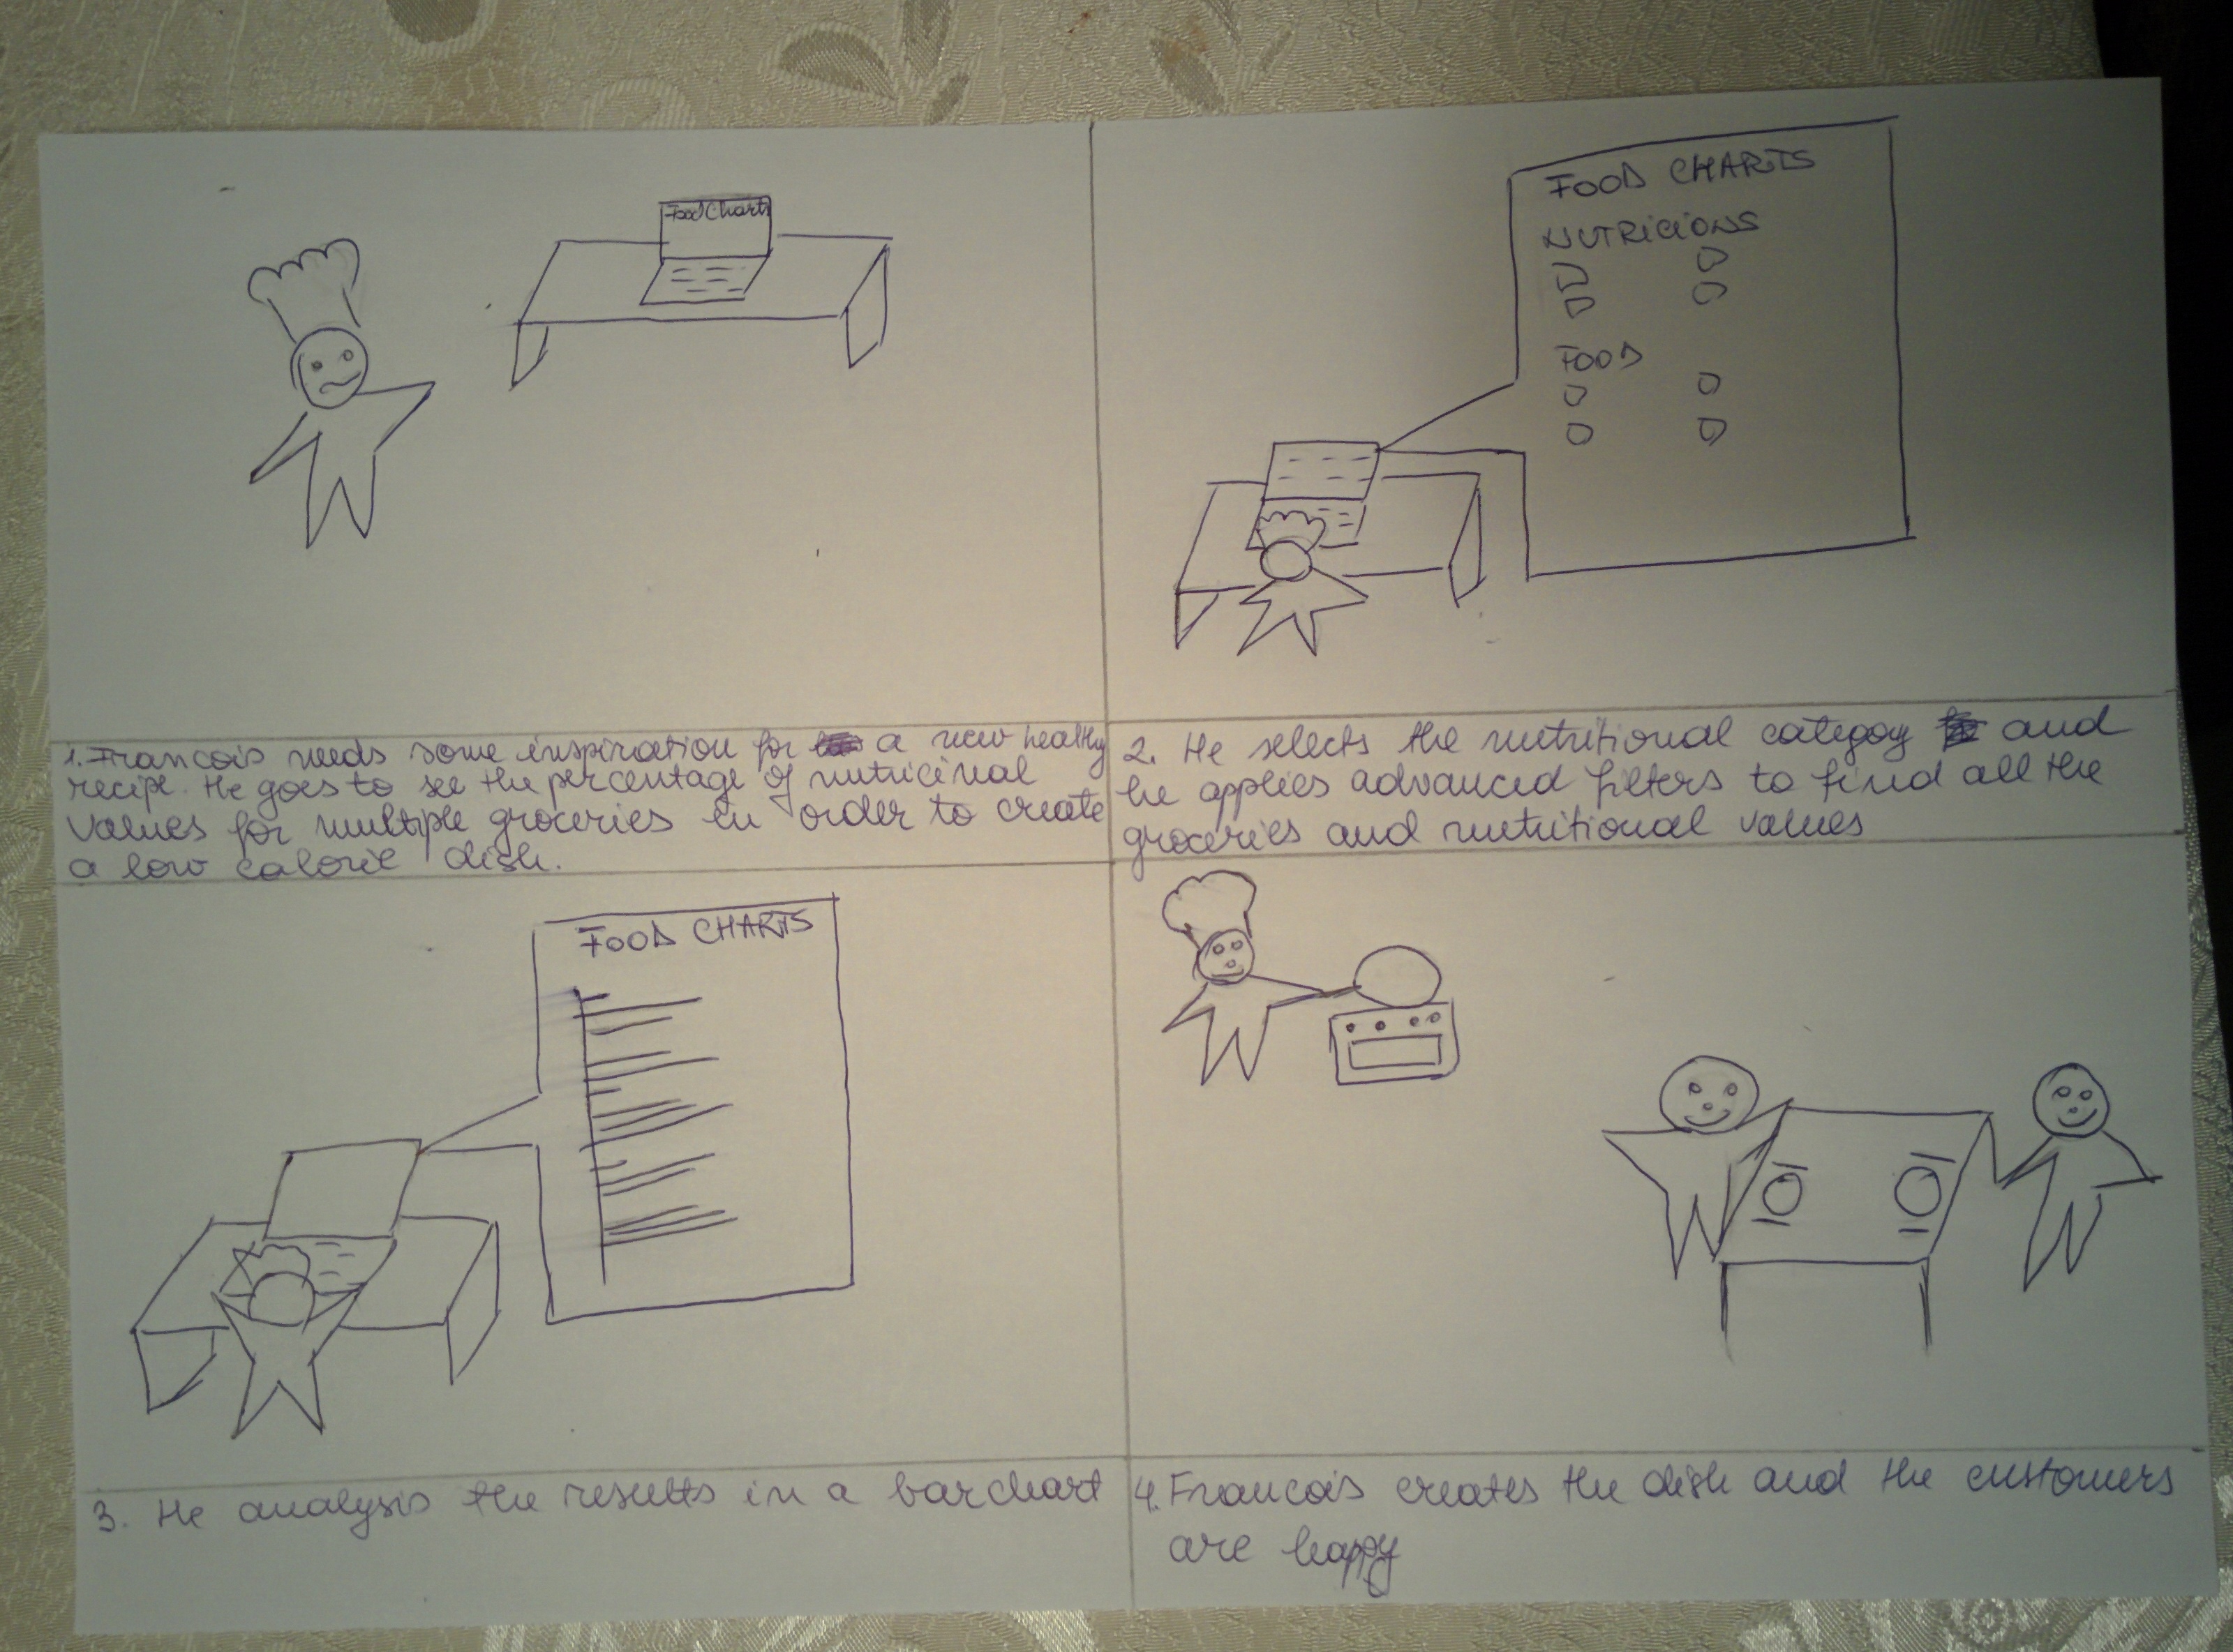 Food Charts
1. Francois needs some inspiration for a new healthy
recipe. He goes to see the percentage of nutricinal
values for multiple groceries in order to create
a low calorie dish.
FOOD CHARTS
NUTRICIONS
FOOD
2. He selects the nutritional categoy and
he applies advanced filters to find all the
groceries and nutritional values
FOOD CHARTS
3. He analysis the results in a barchart
4. Francois creates the dish and the customers
are happy